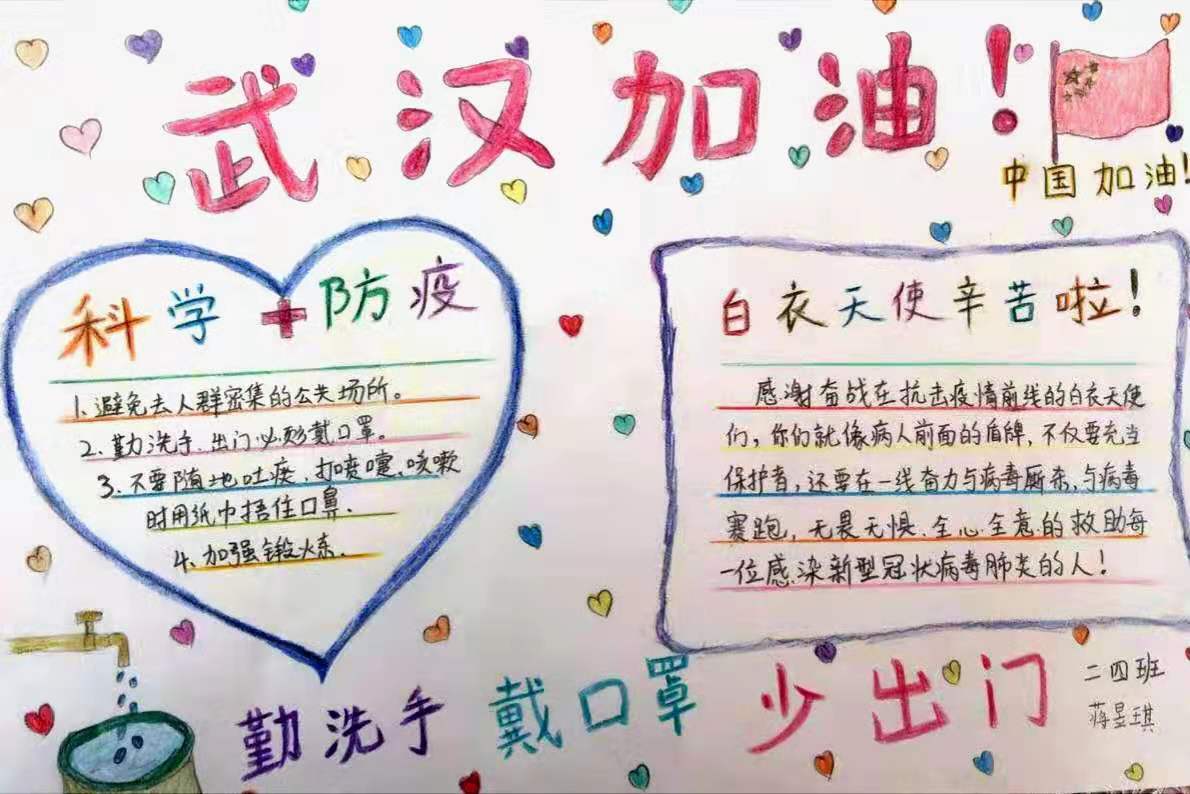 武汉加油!
中国加油!
科学防疫
1、避免去人群密集的公共场所。
2、勤洗手、出门必须戴口罩。
3、不要随地吐痰、打喷嚏、咳嗽
时用纸巾捂住口鼻.
4、加强锻炼.
白衣天使辛苦啦!
感谢奋战在抗击疫情前线的白衣天使
们,你们就像病人前面的盾牌,不仅要充当
保护者,还要在一线奋力与病毒厮杀、与病毒
赛跑,无畏无惧.全心全意的救助每
一位感染新型冠状病毒肺炎的人!
勤洗手 戴口罩 少出门
二四班
蒋昱琪